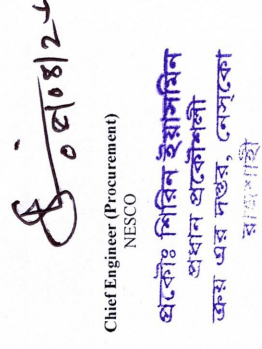 ০৫/০৪/২১
Chief Engineer (Procurement)
NESCO
প্রকৌঃ শিরিন ইয়াসমিন
প্রধান প্রকৌশলী
ক্রয় এর দপ্তর, নেসকো
রাজশাহী